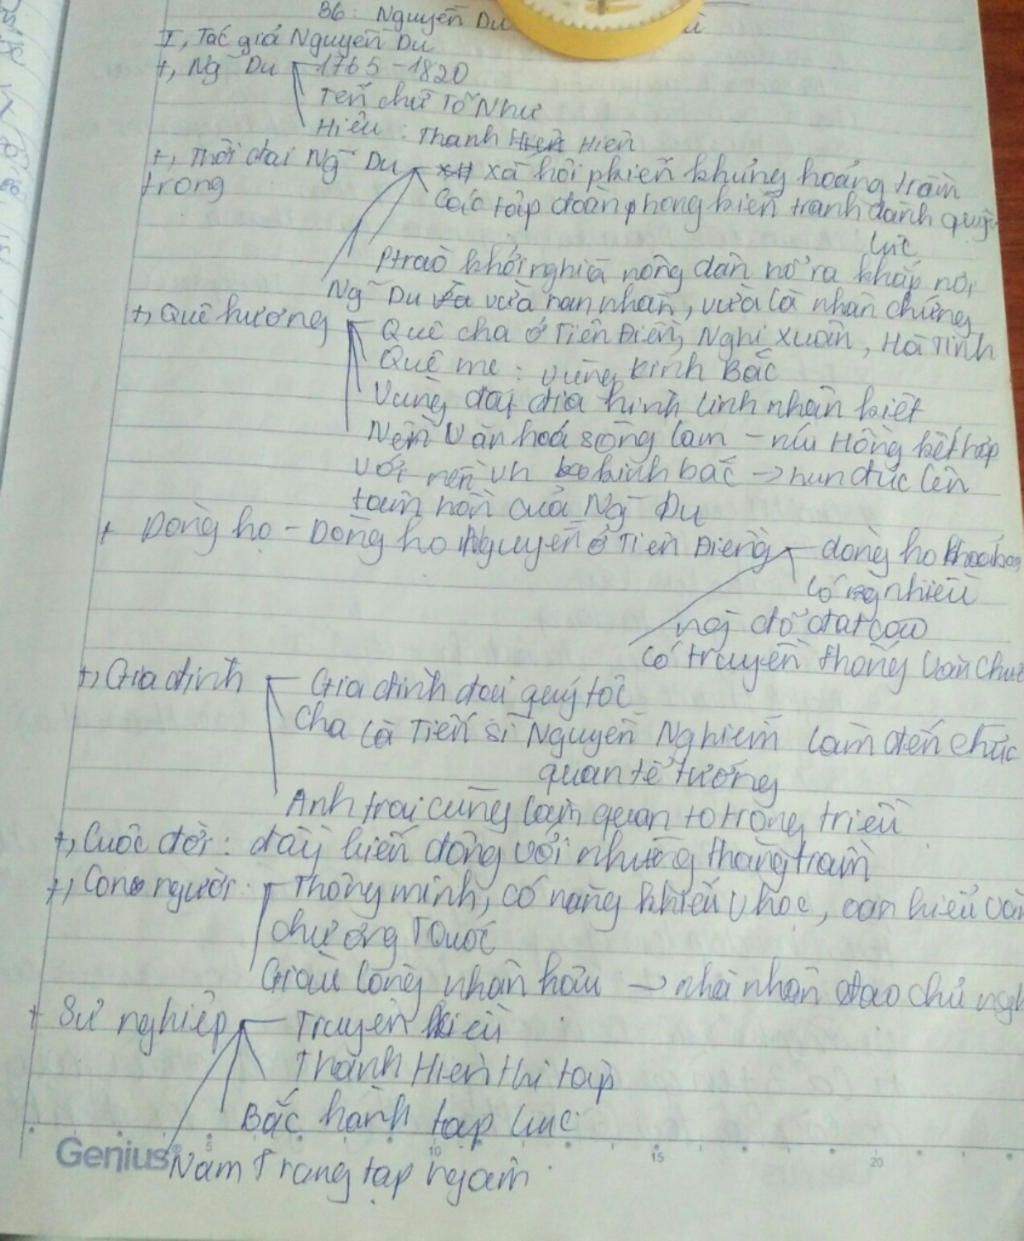 B6: Nguyễn Du
I, Tác giả Nguyễn Du
+, Ng~ Du 1765-1820
Tên chữ Tố Như
Hiệu: Thanh Hiên
+, Thời đại Ng~ Du xã hội phiến khủng hoảng trầm
trọng
Các tập đoàn phong kiến tranh dành quyền
lực
Ptrào khởi nghĩa nông dân nổ ra khắp nơi
Ng~ Du vừa nạn nhân, vừa là nhân chứng
+, Quê hương Quê cha ở Tiên Điền, Nghi Xuân, Hà Tĩnh
Quê mẹ: vùng kinh Bắc
Vùng đất địa hình linh nhân kiệt
Nền Văn hoá sông lam - núi Hồng kết hợp
với nền vh kinh bắc → hun đúc lên
tâm hồn của Ng~ Du
+ Dòng họ - Dòng họ Nguyễn ở Tiên Điền dòng họ khoa bảng
Có nhiều
ng đỗ đạt cao
Có truyền thống văn chương
+, Gia đình Gia đình đại quý tộc
Cha là Tiến sĩ Nguyễn Nghiễm làm đến chức
quan tể tướng
Anh trai cũng làm quan to trong triều
+, Cuộc đời: đầy biến động với những thăng trầm
+, Con người: Thông minh, có năng khiếu vhọc, am hiểu văn
chương TQuốc
Giàu lòng nhân hậu → nhà nhân đạo chủ ngh
+ Sự nghiệp Truyện Kiều
Thanh Hiên thi tập
Bắc hành tạp lục
Genius 5 10 15 20
Nam Trung tạp ngâm